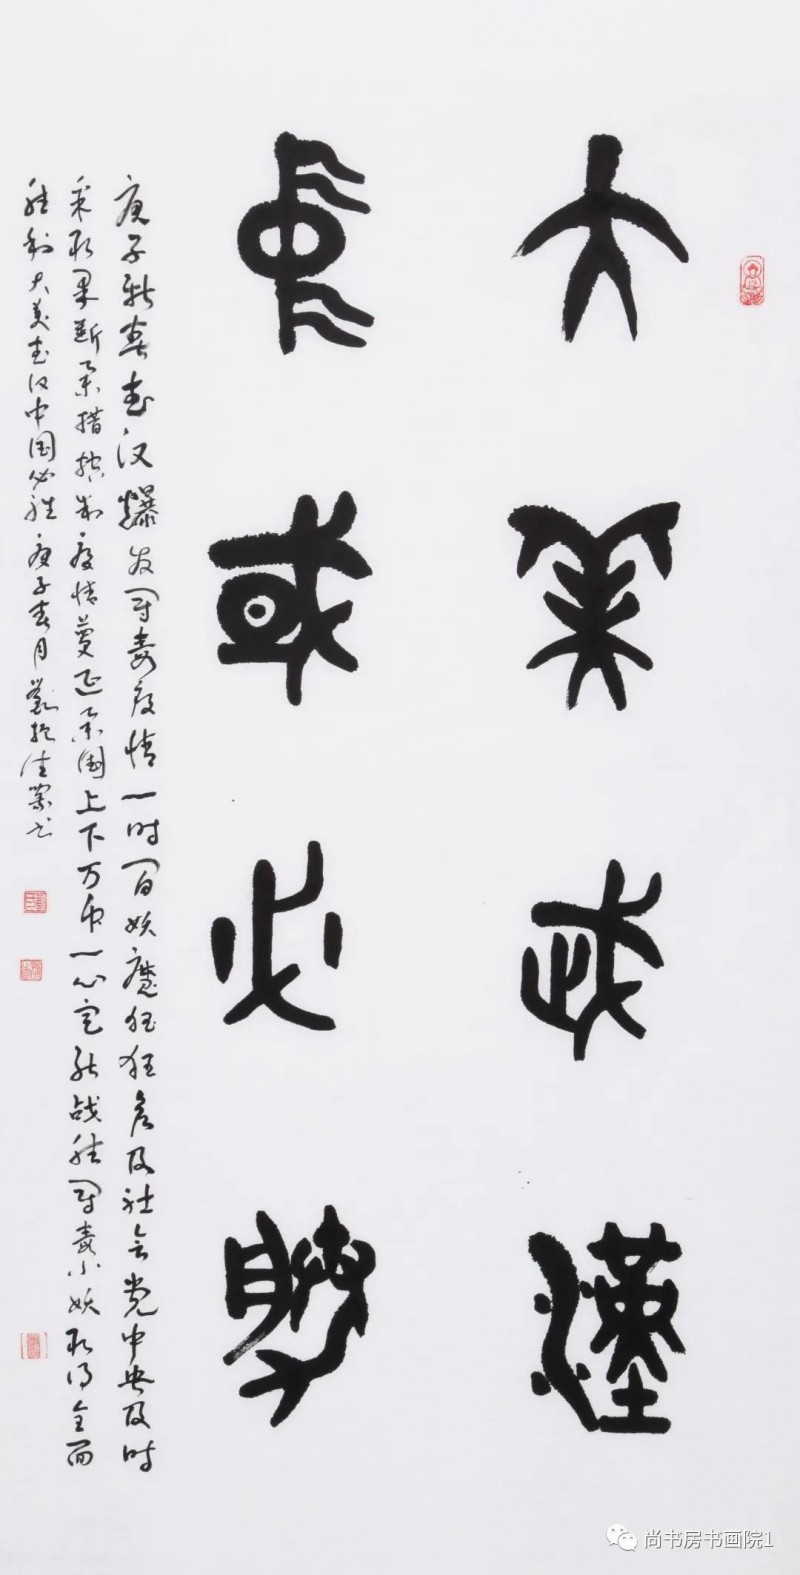 大美武漢
中或必勝
庚子新春武汉爆发冠毒疫情一时间百妖魔狂狂危及社会党中央及时
采取果断举措控制疫情蔓延举国上下万众一心定能战胜冠毒小妖取得全面
胜利大美武汉中国必胜庚子春月刘
尚书房书画院1